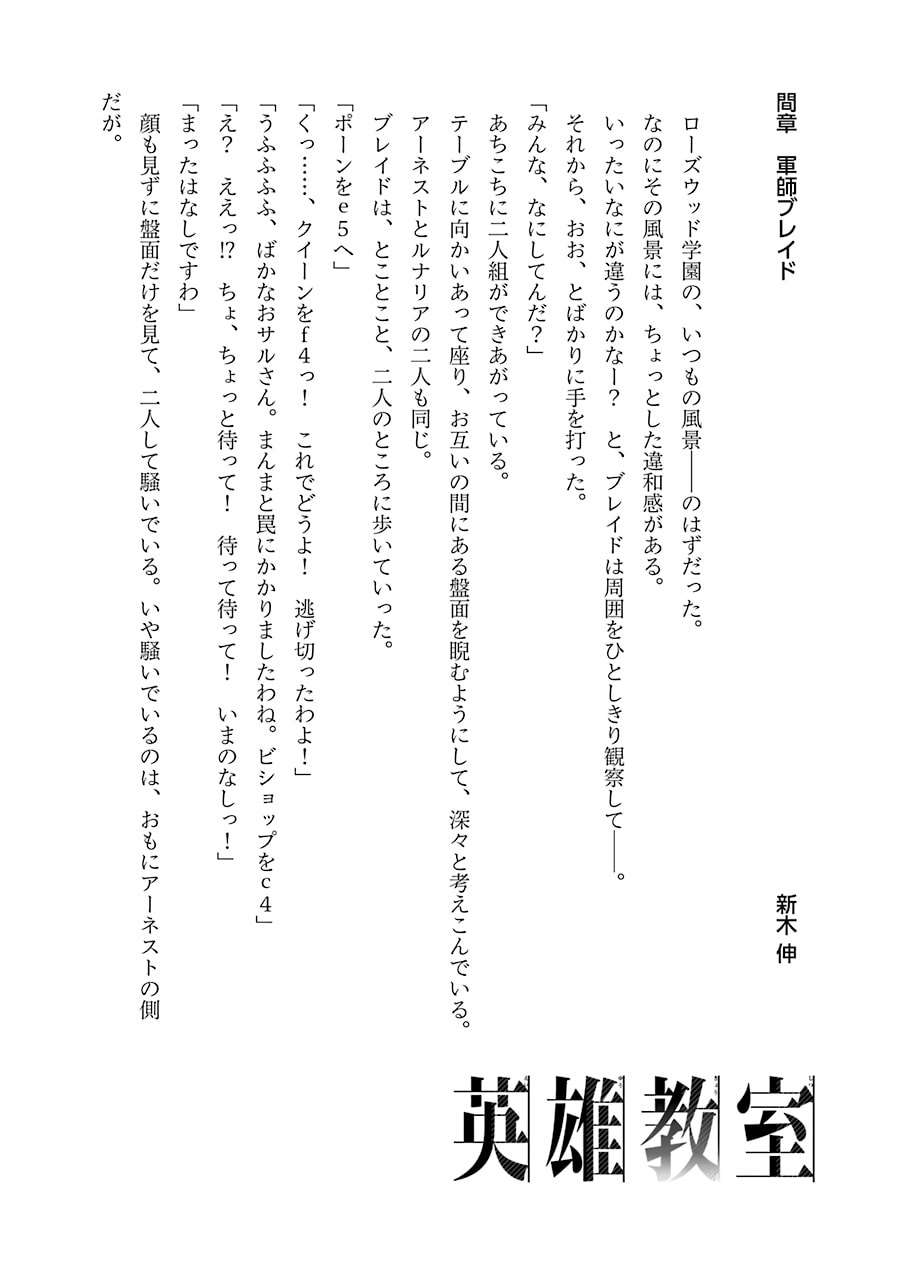 間章　軍師ブレイド
新木 伸
　ローズウッド学園の、いつもの風景――のはずだった。
　なのにその風景には、ちょっとした違和感がある。
　いったいなにが違うのかなー？　と、ブレイドは周囲をひとしきり観察して――。
　それから、おお、とばかりに手を打った。
「みんな、なにしてんだ？」
　あちこちに二人組ができあがっている。
　テーブルに向かいあって座り、お互いの間にある盤面を睨むようにして、深々と考えこんでいる。
　アーネストとルナリアの二人も同じ。
　ブレイドは、とことこと、二人のところに歩いていった。
「ポーンをｅ５へ」
「くっ……、クイーンをｆ４っ！　これでどうよ！　逃げ切ったわよ！」
「うふふふふ、ばかなおサルさん。まんまと罠にかかりましたわね。ビショップをｃ４」
「え？　ええっ!?　ちょ、ちょっと待って！　待って待って！　いまのなしっ！」
「まったはなしですわ」
　顔も見ずに盤面だけを見て、二人して騒いでいる。いや騒いでいるのは、おもにアーネストの側
だが。
英雄教室